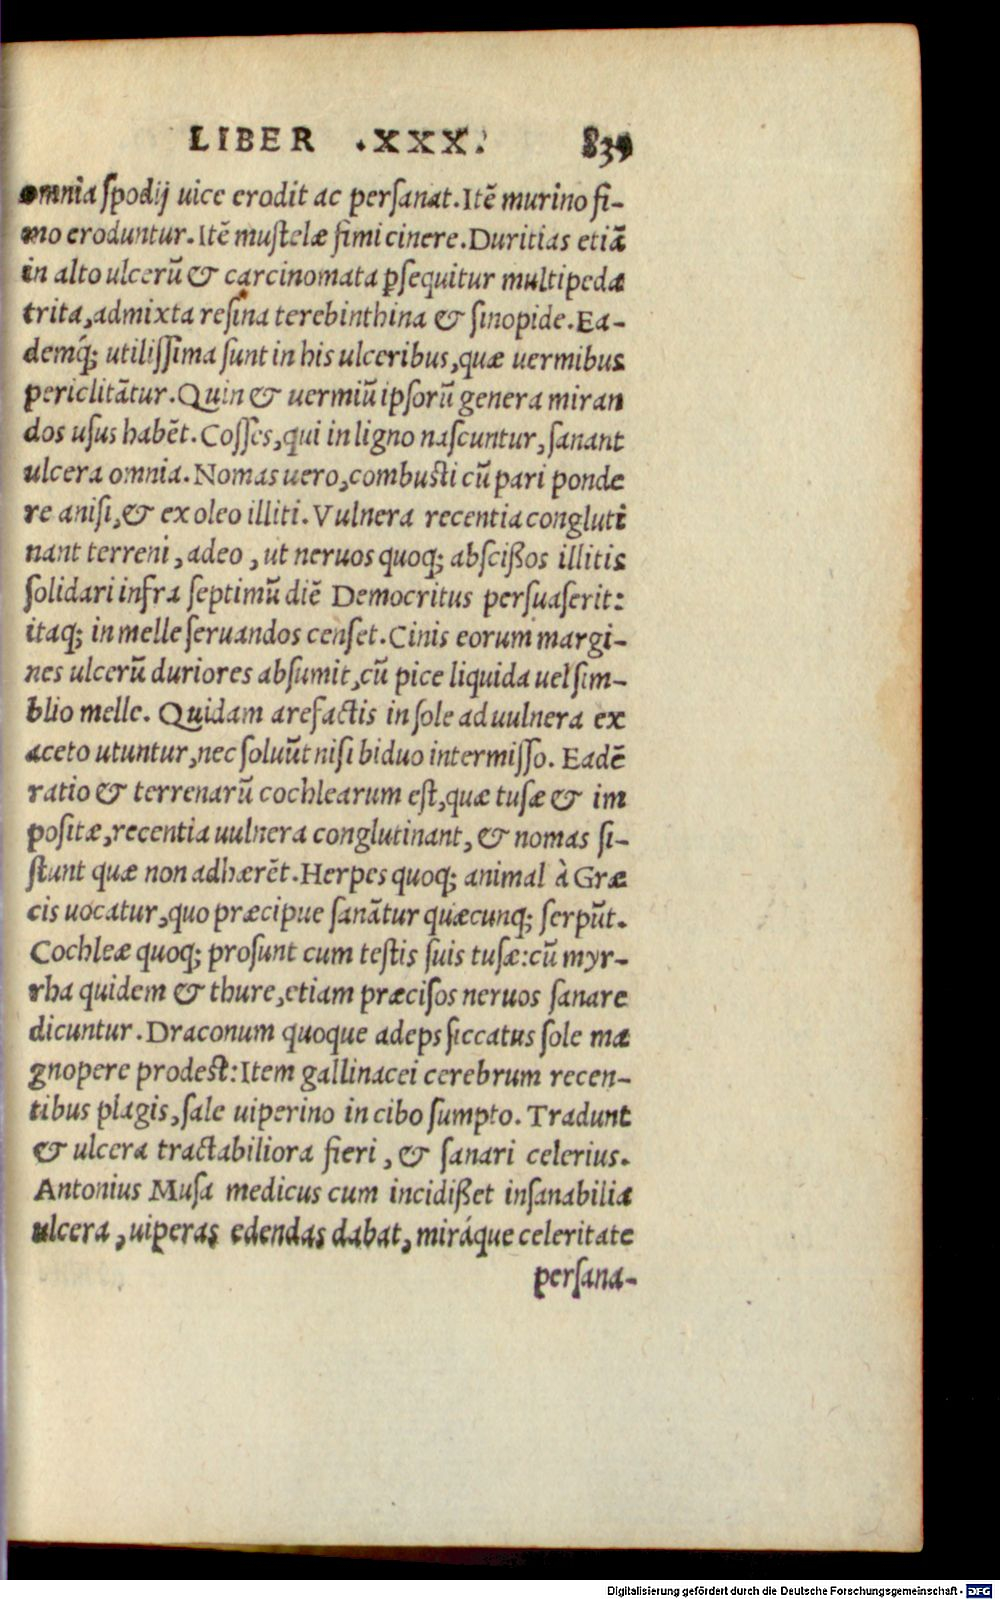 LIBER .XXX. 839
omnia ſpodij uice erodit ac perſanat. Itē murino fi-
mo eroduntur. Itē muſtelæ fimi cinere. Duritias etiā
in alto ulcerū & carcinomata p̱ſequitur multipeda
trita, admixta reſina terebinthina & ſinopide. Ea-
demq́; utiliſſima ſunt in his ulceribus, quæ uermibus
periclitātur. Quin & uermiū ipſorū genera miran
dos uſus habēt. Coſſes, qui in ligno naſcuntur, ſanant
ulcera omnia. Nomas uero, combuſti cū pari ponde
re aniſi, & ex oleo illiti. Vulnera recentia congluti
nant terreni, adeo, ut neruos quoq; abſcißos illitis
ſolidari infra ſeptimū diē Democritus perſuaſerit:
itaq; in melle ſeruandos cenſet. Cinis eorum margi-
nes ulcerū duriores abſumit, cū pice liquida uel ſim-
blio melle. Quidam arefactis in ſole ad uulnera ex
aceto utuntur, nec ſoluūt niſi biduo intermiſſo. Eadē
ratio & terrenarū cochlearum eſt, quæ tuſæ & im
poſitæ, recentia uulnera conglutinant, & nomas ſi-
ſtunt quæ non adhærēt. Herpes quoq; animal à Græ
cis uocatur, quo præcipue ſanātur quæcunq; ſerpūt.
Cochleæ quoq; proſunt cum teſtis ſuis tuſæ: cū myr-
rha quidem & thure, etiam præciſos neruos ſanare
dicuntur. Draconum quoque adeps ſiccatus ſole ma
gnopere prodeſt: Item gallinacei cerebrum recen-
tibus plagis, ſale uiperino in cibo ſumpto. Tradunt
& ulcera tractabiliora fieri, & ſanari celerius.
Antonius Muſa medicus cum incidißet inſanabilia
ulcera, uiperas edendas dabat, miráque celeritate
perſana-
Digitalisierung gefördert durch die Deutsche Forschungsgemeinschaft - DFG